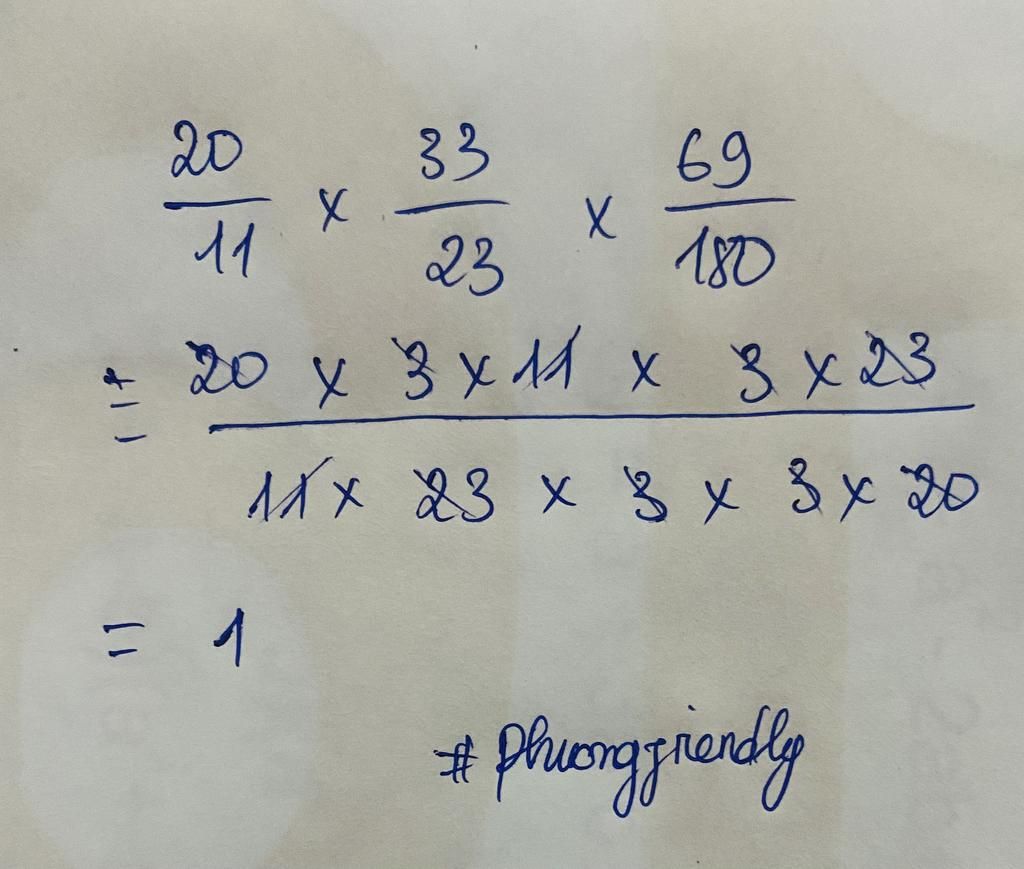 20/11 x 33/23 x 69/180
= 20 x 3 x 11 x 3 x 23 / 11 x 23 x 3 x 3 x 20
= 1
# Phuongfriendly